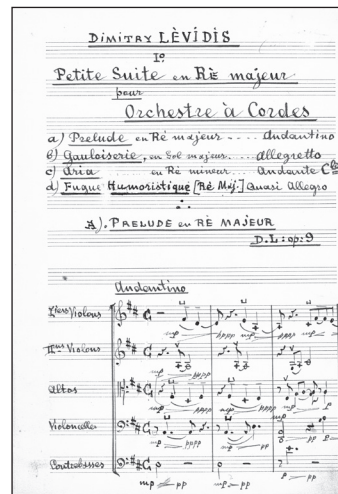 DIMITRY LÈVIDIS
I⁰
Petite Suite en Rè majeur
pour
Orchestre à Cordes
a) Prelude en Ré majeur .... Andantino
b) Gauloiserie, en Sol majeur. .... Allegretto
c) Aria .... en Ré mineur. Andante
d) Fugue Humoristique [Ré Maj.] Quasi Allegro
A). PRELUDE en RÈ MAJEUR
D.L: op: 9
Andantino
Iers Violons
mp pppp mp pp
IIms Violons
mp pppp
Altos
mp pppp mp pp
Violoncelles
mp pppp mp pp mp pp
Contrebasses
mp pp mp pp